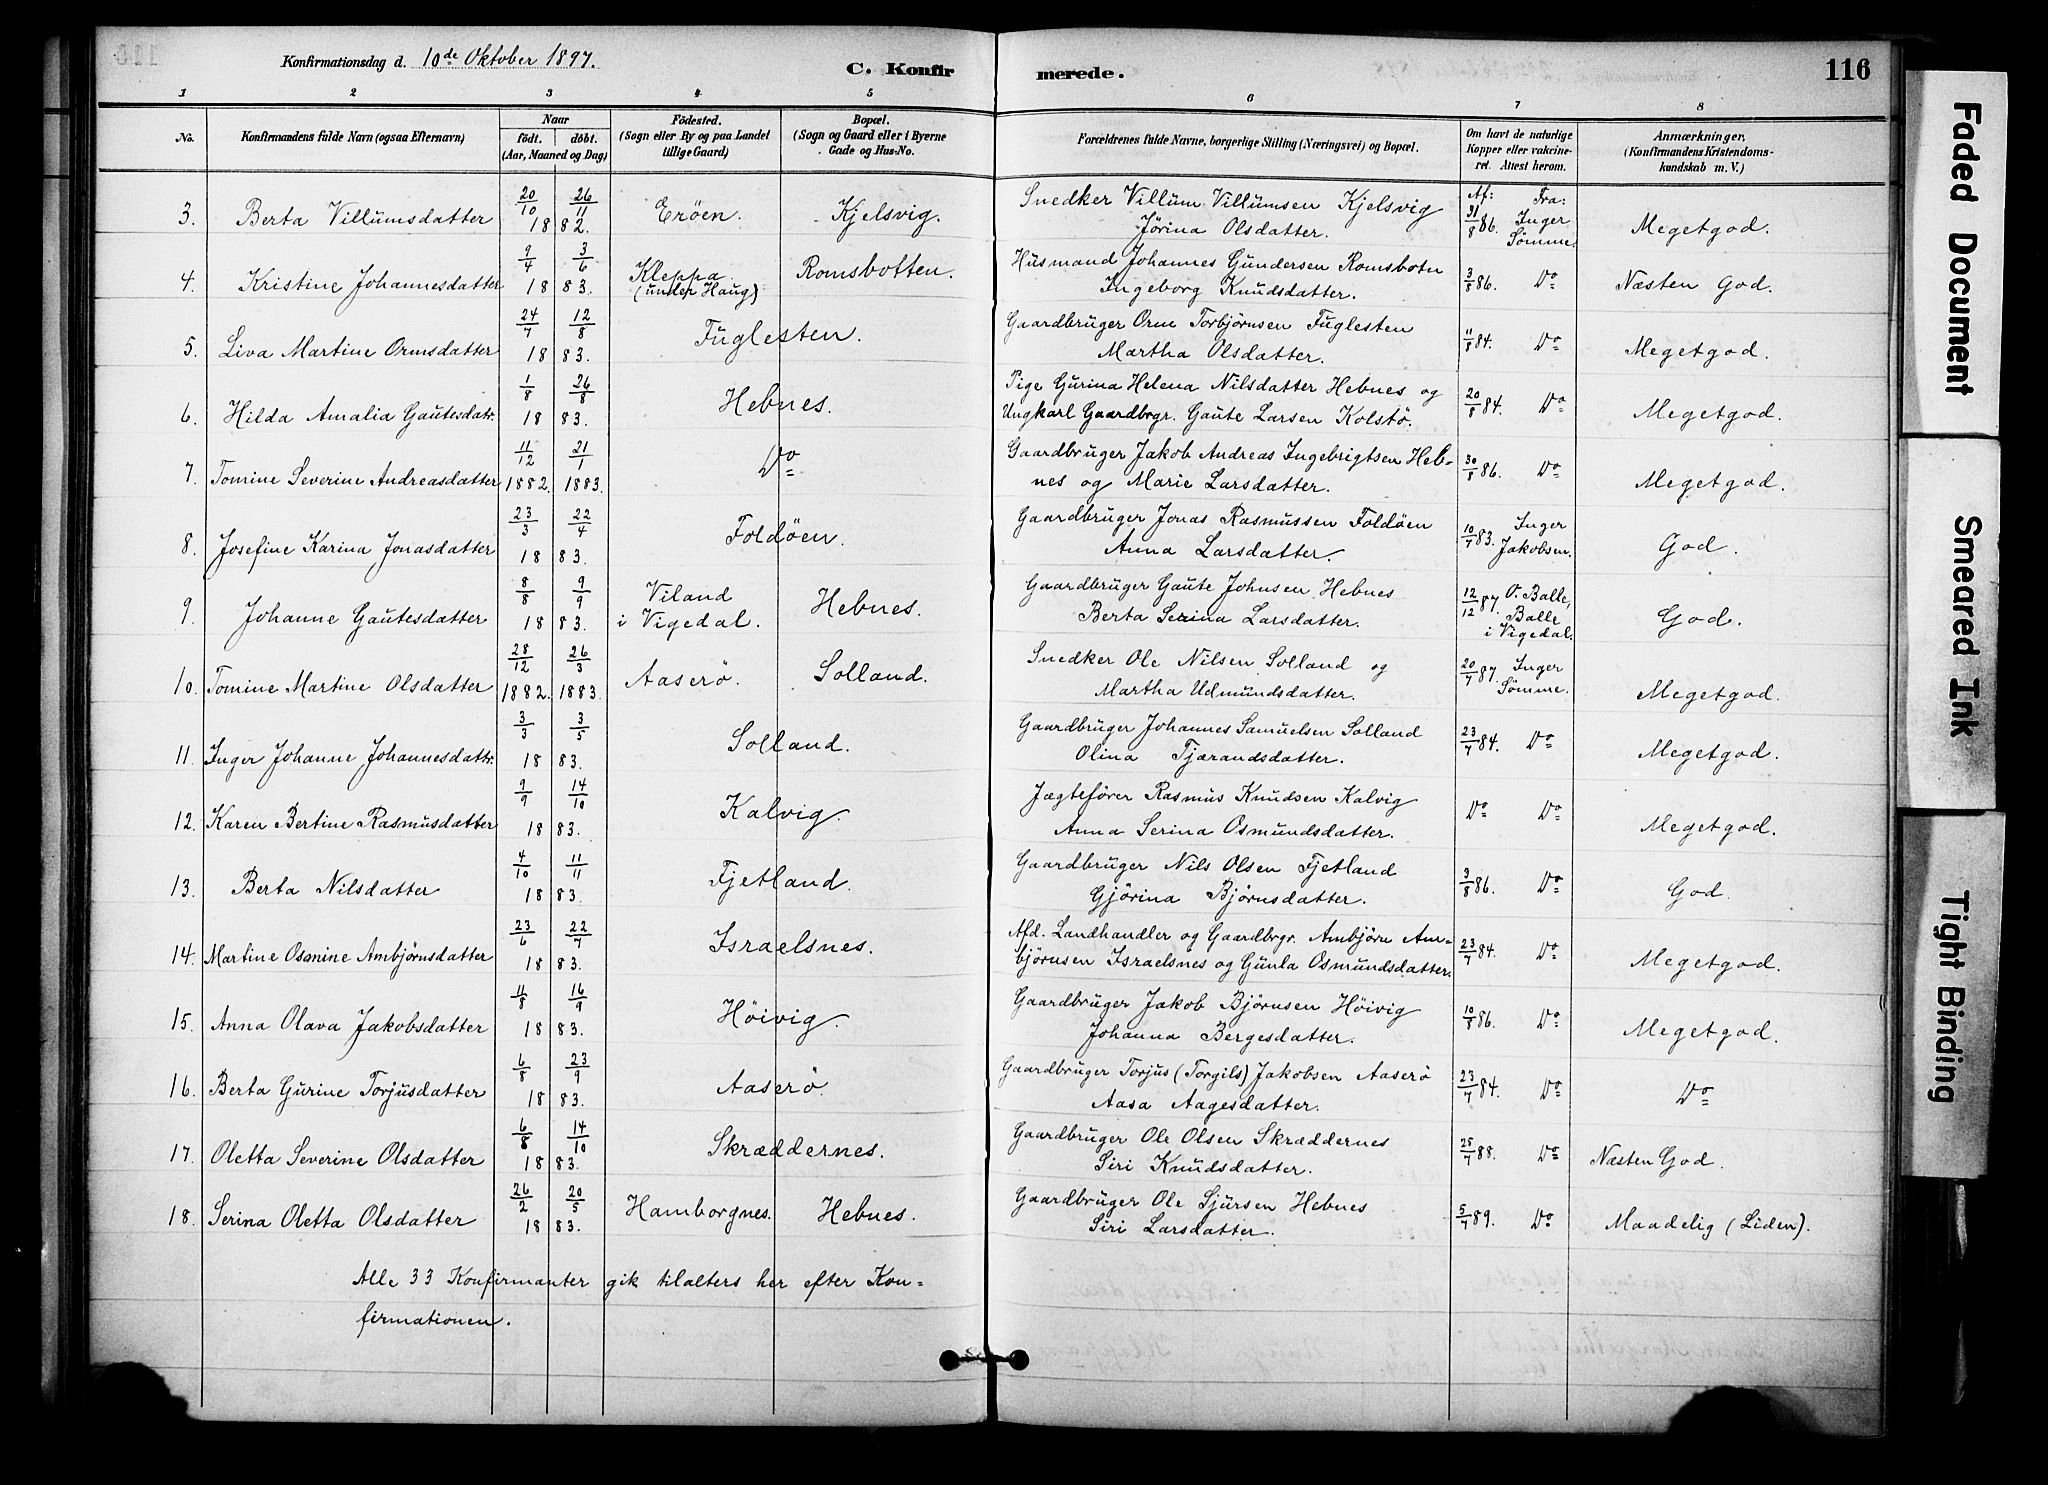 Konfirmationsdag d. 10de Oktober 1897.
C. Konfirmerede.
116
1 2 3 4 5 6 7 8
No.
Konfirmandens fulde Navn (ogsaa Efternavn)
Naar
födt. döbt.
(Aar, Maaned og Dag)
Födested.
(Sogn eller By og paa Landet
tillige Gaard)
Bopæl.
(Sogn og Gaard eller i Byerne
Gade og Hus-No.
Forældrenes fulde Navne, borgerlige Stilling (Næringsvei) og Bopæl.
Om havt de naturlige
Kopper eller vakcine-
ret. Attest herom.
Anmærkninger.
(Konfirmandens Kristendoms-
kundskab m. V.)
Af: Fra:
3. Berta Villumsdatter 20/10 26/11 1882. Eröen. Kjelsvig. Snedker Villum Villumsen Kjelsvig
Jörina Olsdatter. 31/8 86. Inger Sömme. Megetgod.
4. Kristine Johannesdatter 9/4 3/6 1883. Kleppa (under Haug) Romsbotten. Husmand Johannes Gundersen Romsbotn
Ingeborg Knudsdatter. 3/8 86. Do Næsten God.
5. Liva Martine Ormsdatter 24/7 12/8 1883. Fuglesten. Gaardbruger Orm Torbjörnsen Fuglesten
Martha Olsdatter. 11/8 84. Do Megetgod.
6. Hilda Amalia Gautesdatr. 1/8 26/8 1883. Hebnes. Pige Gurina Helena Nilsdatter Hebnes og
Ungkarl Gaardbrgr. Gaute Larsen Kolstö. 20/8 84. Do Megetgod.
7. Tomine Severine Andreasdatter 11/12 1882. 21/1 1883. Do Gaardbruger Jakob Andreas Ingebrigtsen Heb-
nes og Marie Larsdatter. 30/8 86. Do Megetgod.
8. Josefine Karina Jonasdatter 23/3 22/4 1883. Foldöen. Gaardbruger Jonas Rasmussen Foldöen
Anna Larsdatter. 10/7 83. Inger Jakobsen. God.
9. Johanne Gautesdatter 8/8 9/9 1883. Viland i Vigedal. Hebnes. Gaardbruger Gaute Johnsen Hebnes
Berta Serina Larsdatter. 12/12 87. O. Balle, Balle i Vigedal. God.
10. Tomine Martine Olsdatter 28/12 1882. 26/3 1883. Aaserö. Solland. Snedker Ole Nilsen Solland og
Martha Udmundsdatter. 20/7 87. Inger Sömme. Megetgod.
11. Inger Johanne Johannesdattr. 3/3 3/5 1883. Solland. Gaardbruger Johannes Samuelsen Solland
Olina Tjærandsdatter. 23/7 84. Do Megetgod.
12. Karen Bertine Rasmusdatter 9/9 14/10 1883. Kalvig. Jægtefører Rasmus Knudsen Kalvig
Anna Serina Osmundsdatter. Do Do Megetgod.
13. Berta Nilsdatter 4/10 11/11 1883. Fjetland. Gaardbruger Nils Olsen Fjetland
Gjörina Björnsdatter. 3/8 86. Do God.
14. Martine Osmine Ambjörnsdatter 23/6 22/7 1883. Israelsnes. Afd. Landhandler og Gaardbrgr. Ambjörn Am-
björnsen Israelsnes og Gunla Osmundsdatter. 23/7 84. Do Megetgod.
15. Anna Olava Jakobsdatter 11/8 16/9 1883. Höivig. Gaardbruger Jakob Björnsen Höivig
Johanna Bergesdatter. 10/8 86. Do Megetgod.
16. Berta Gurine Torjusdatter 6/8 23/9 1883. Aaserö. Gaardbruger Torjus (Torgils) Jakobsen Aaserö
Aasa Aagesdatter. 23/7 84. Do Do
17. Oletta Severine Olsdatter 6/8 14/10 1883. Skræddernes. Gaardbruger Ole Olsen Skræddernes
Siri Knudsdatter. 25/7 88. Do Næsten God.
18. Serina Oletta Olsdatter 26/2 20/5 1883. Hamborgnes. Hebnes. Gaardbruger Ole Sjursen Hebnes
Siri Larsdatter. 5/7 89. Do Maadelig (Liden).
Alle 33 Konfirmanter gik tilalters her efter Kon-
firmationen.
Faded Document
Smeared Ink
Tight Binding